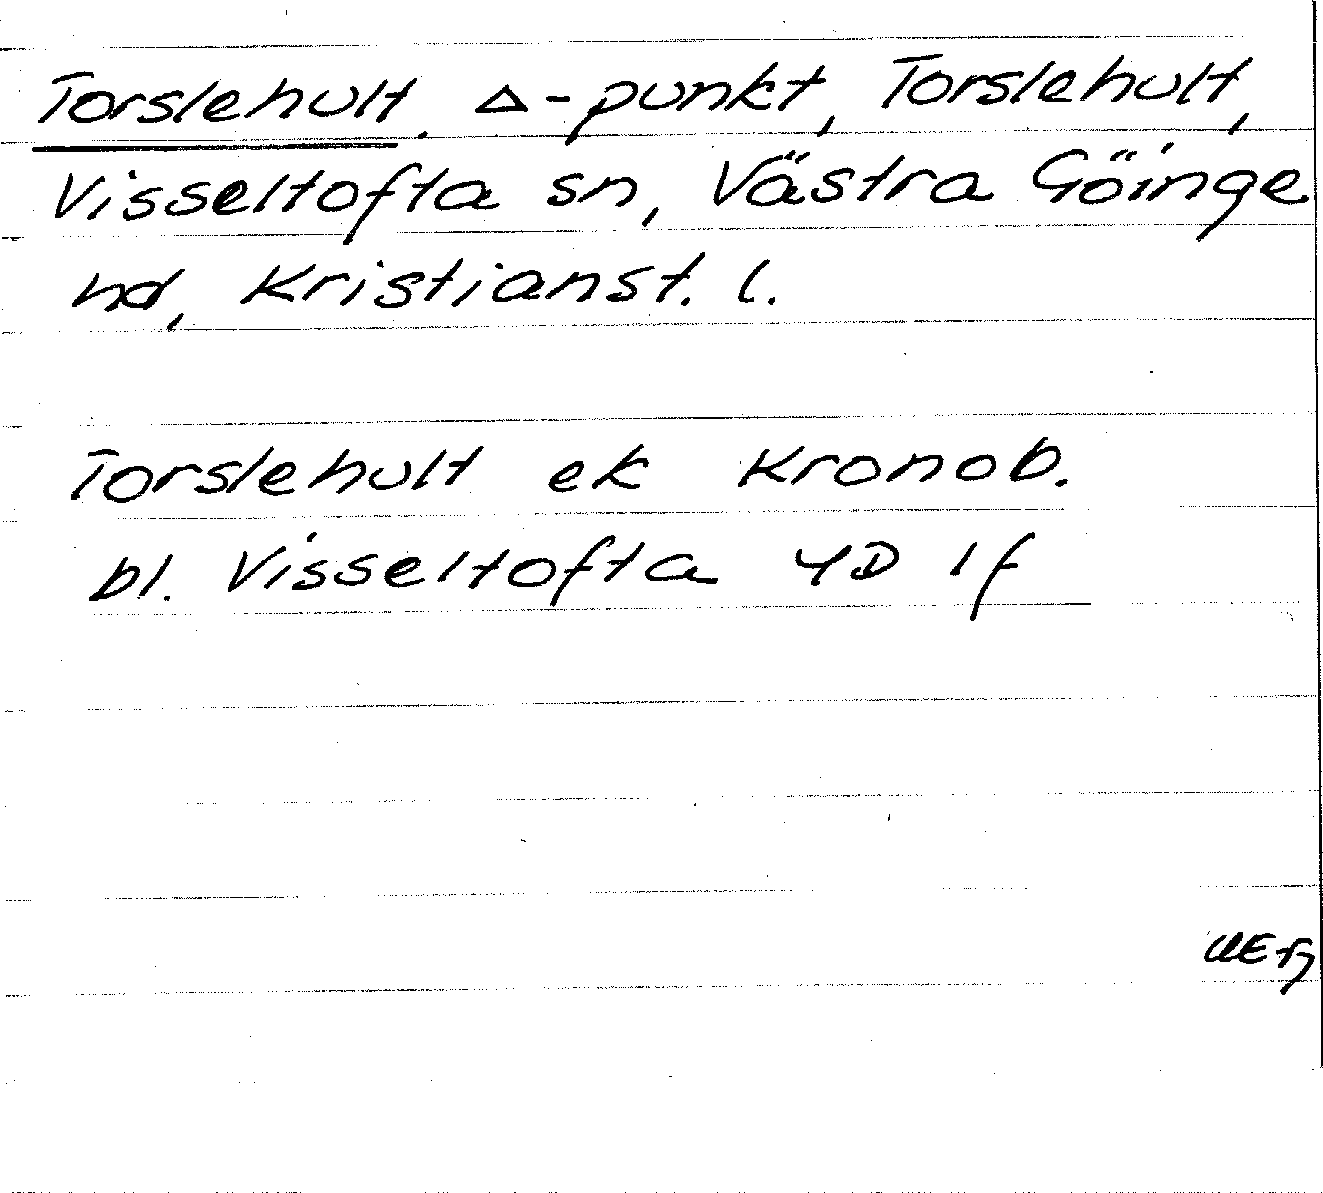 Torslehult. Δ-punkt, Torslehult,
Visseltofta sn, Västra Göinge
hd, Kristianst. l.
Torslehult ek Kronob.
bl. Visseltofta 4D 1f